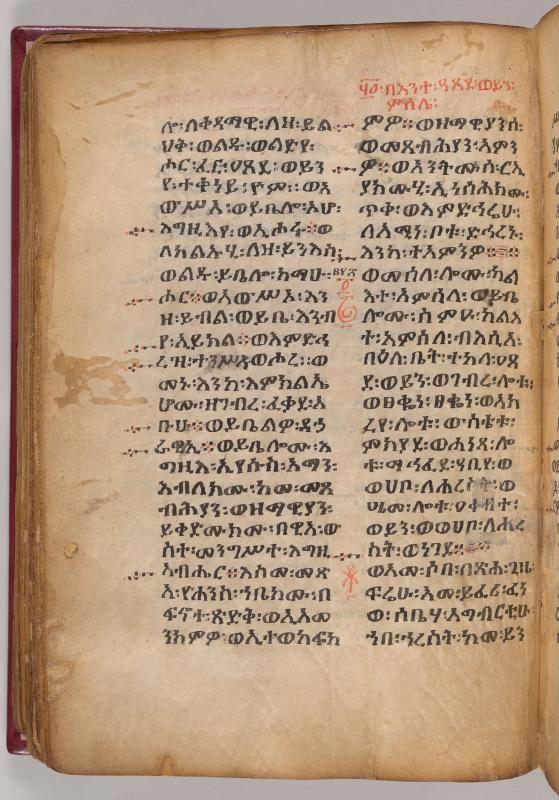 ፶፬፡በእንተ፡ዓጸደ፡ወይን፡
ምሳሌ፡
ሎ፡ለቀዳማዊ፡ለዘ፡ይል
ህቅ፡ወልዱ፡ወልድየ፡
ሖር፡ፈድ፡ዐጸደ፡ወይን
የ፡ተቀነይ፡ዮም።ወአ
ውሥአ፡ወይቤሎ፡ኦሆ፡
እግዚእየ፡ወኢሖረ።ወ
ለካልኡሂ፡ለዘ፡ይንእስ፡
ወልዱ፡ይቤሎ፡ከማሁ፡
ሖር።ወአውሥአ፡እን
ዘ፡ይብል፡ወይቤ፡እንብ
የ፡አይከል።ወእምድኅ
ረዝ፡ተነሥሐ፡ወሖረ።ወ
መኑ፡እንከ፡እምክልኤ
ሆሙ፡ዘገብረ፡ፈቃደ፡አ
ቡሁ።ወይቤልዎ፡ደኃ
ራዊ።ወይቤሎሙ፡እ
ግዚእ፡ኢየሱስ፡አማን፡
እብለክሙ፡ከመ፡መጸ
ብሐያን፡ወዘማዊያን፡
ይቀድሙክሙ፡በዊአ፡ው
ስተ፡መንግሥተ፡እግዚ
አብሔር።እስመ፡መጽ
አ፡ዮሐንስ፡ኀቤክሙ፡በ
ፍኖተ፡ጽድቅ፡ወኢአመ
ንክምዎ፡ወኢተወከፍክ
ምዎ።ወዘማዊያንሰ፡
ወመጸብሐያን፡አምን
ዎ።ወአንትሙሰ፡ርኢ
ያክሙሂ፡ኢነሰሐክሙ፡
ጥቀ፡ወእምድኅሬሁ፡
ለአሚን፡ቦቱ፡ድኅረ፡
እንከ፡ተአምንዎ።
ወመሰለ፡ሎሙ፡ካል
እተ፡አምሳለ፡ወይቤ
ሎሙ፡ስምዑ፡ካልእ
ተ፡አምሳለ፡ብእሲ፡
በዕለ፡ቤት፡ተከለ፡ዐጸ
ደ፡ወይን፡ወገብረ፡ሎቱ፡
ወፀቈነ፡ፀቈነ፡ወአክ
ረየ፡ሎቱ፡ውስቴቱ፡
ምክያደ፡ወሐነጸ፡ሎ
ቱ፡ማኅፈደ፡ሃቢየ፡ወ
ወሀቦ፡ለሐረስት፡ወ
ሤመ፡ሎቱ፡ዐቀብተ፡
ወይን፡ወወሀቦ፡ለሐረ
ስት፡ወነገደ።
ወእመ፡ሶበ፡በጽሐ፡ጊዜ፡
ፍሬሁ፡አመ፡ይፈሪ፡ፈነ
ወ፡ሰቤሃ፡አግብርቲሁ፡
ኀበ፡ኀረስት፡ከመ፡ይን